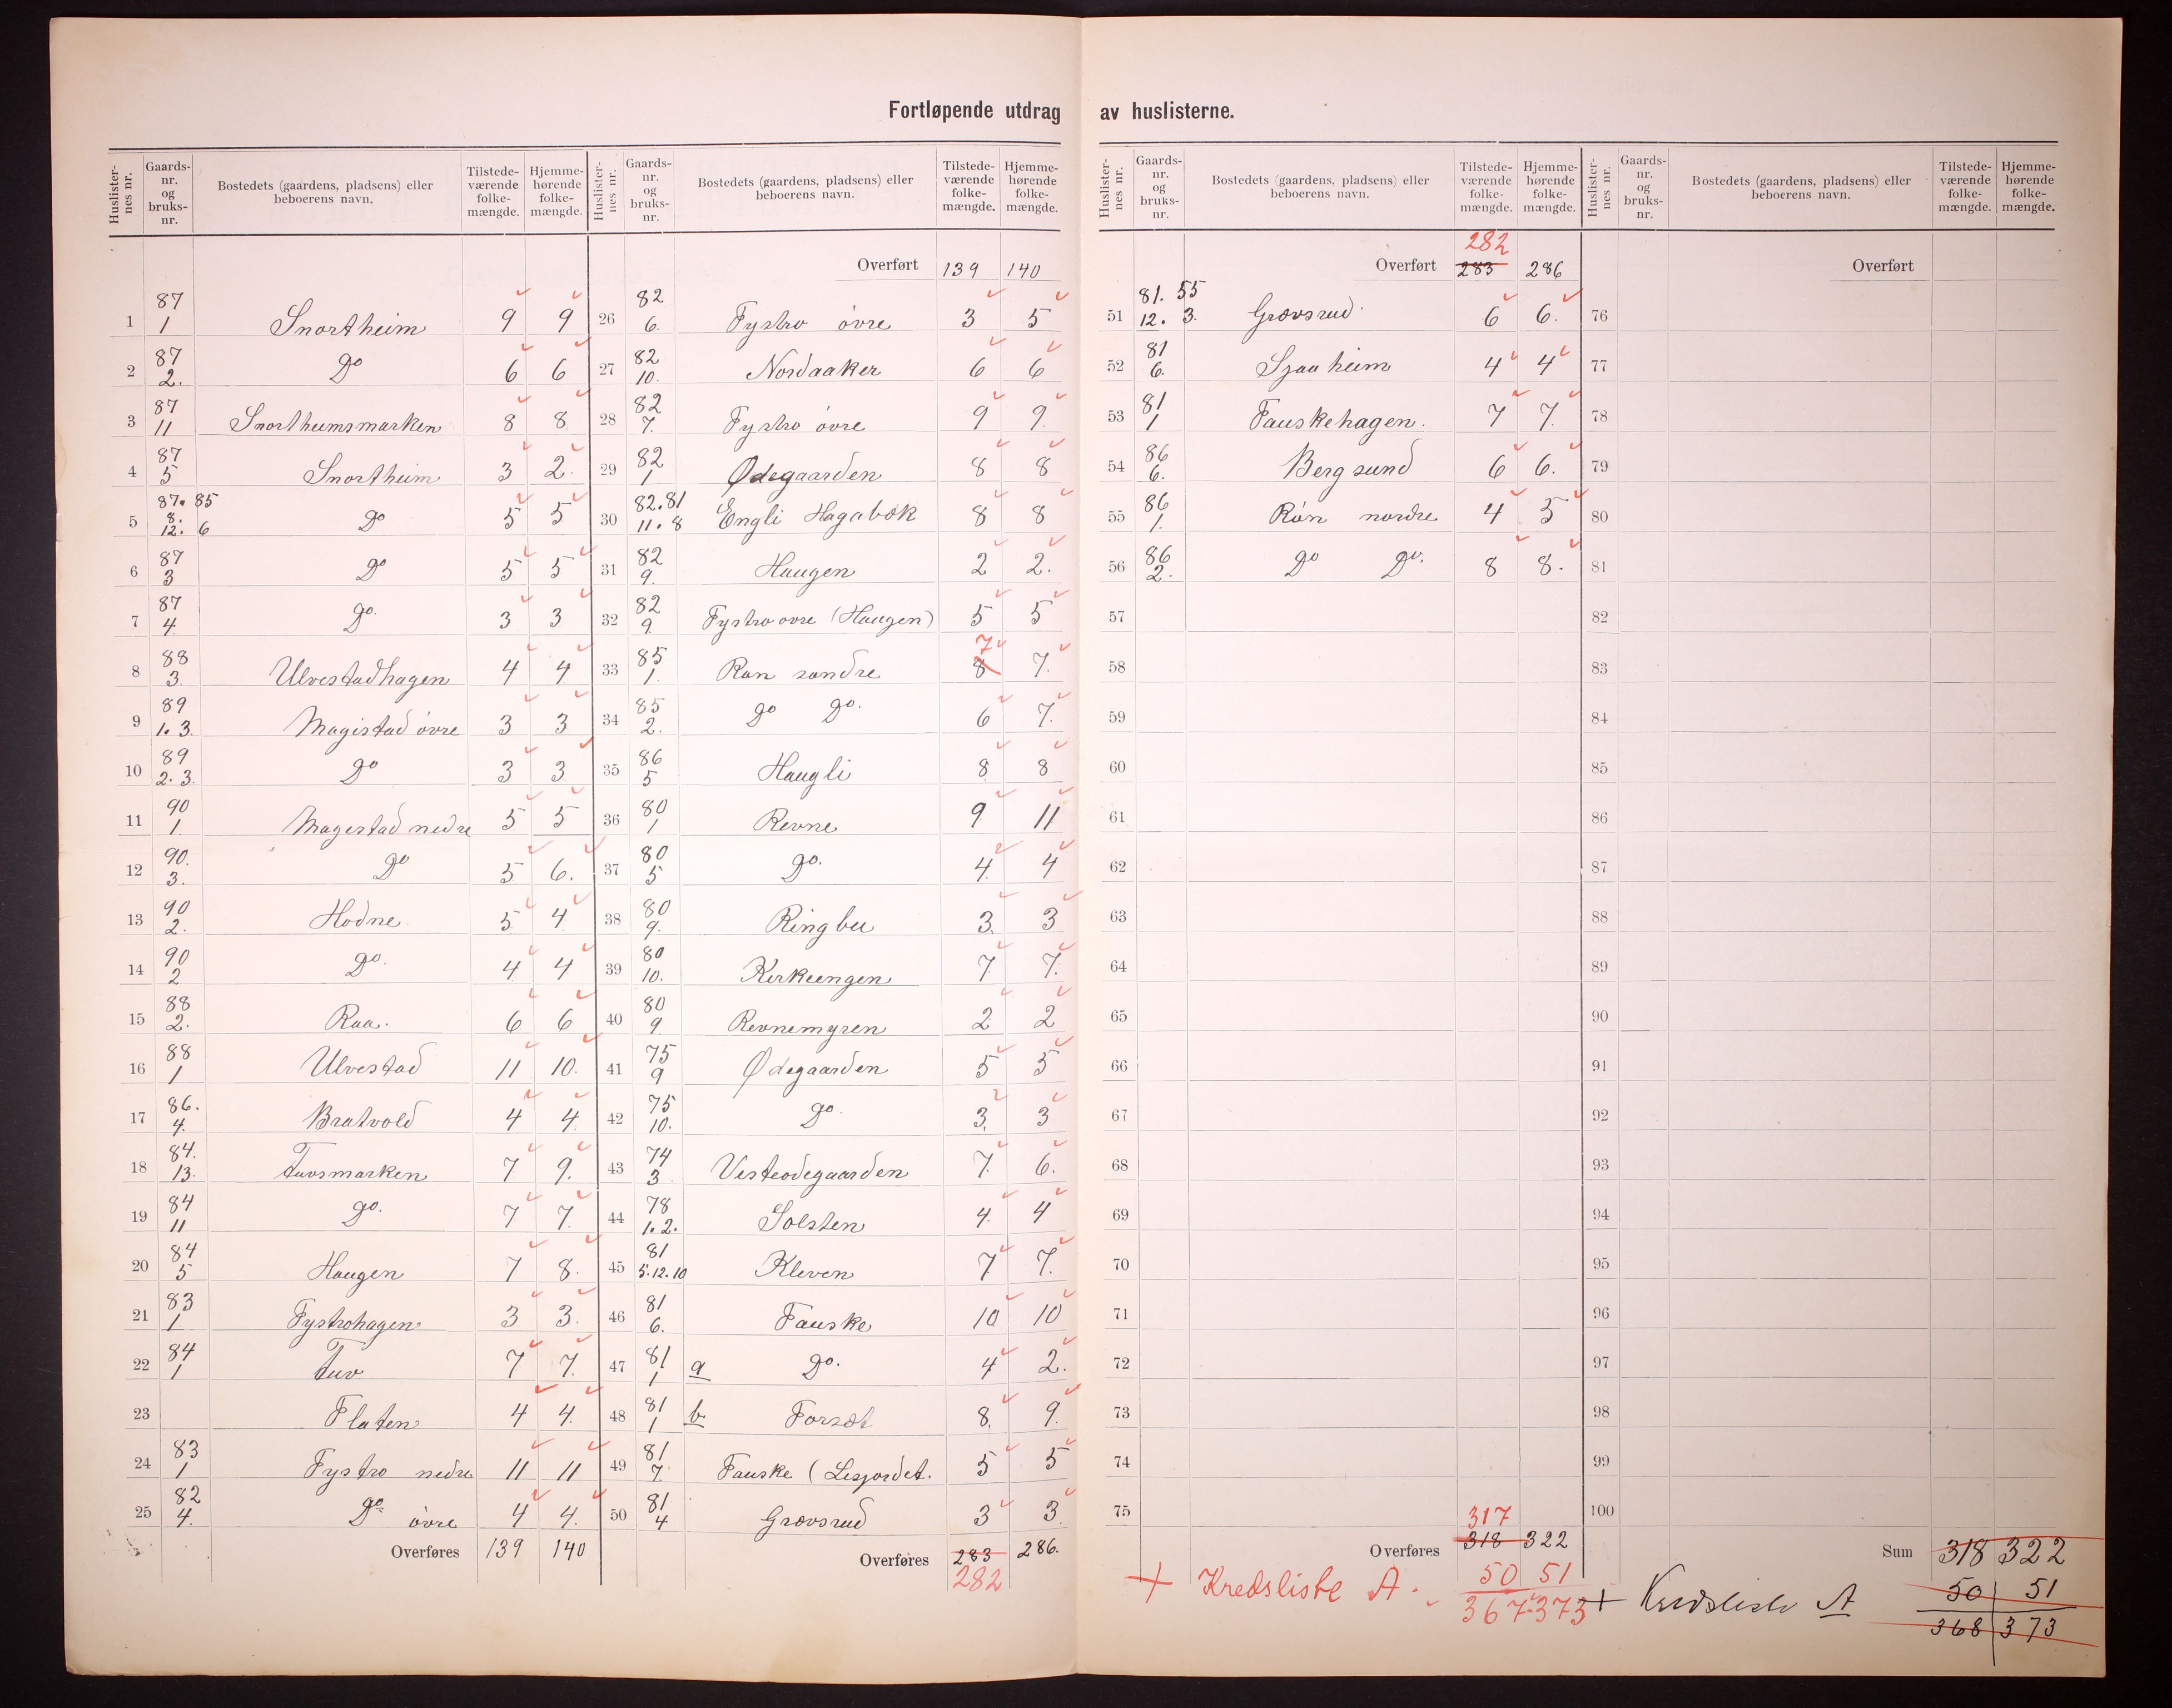 Fortløpende utdrag av huslisterne.
Huslister-nes nr. Gaards-nr. og bruks-nr. Bostedets (gaardens, pladsens) eller beboerens navn. Tilstede-værende folke-mængde. Hjemme-hørende folke-mængde.
1 87 1 Snortheim 9 9
2 87 2. Do 6 6
3 87 11 Snortheimsmarken 8 8
4 87 5 Snortheim 3 2.
5 87. 85 8. 12. 6 Do 5 5
6 87 3 Do 5 5
7 87 4 Do. 3 3
8 88 3. Ulvestadhagen 4 4
9 89 1. 3. Magistad övre 3 3
10 89 2. 3. Do 3 3
11 90 1. Magestad nedre 5 5
12 90. 3. Do 5 6.
13 90 2. Hodne 5 4
14 90 2 Do. 4 4
15 88 2. Raa. 6 6
16 88 1 Ulvestad 11 10.
17 86. 4. Bratvold 4 4
18 84. 13. Tuvsmarken 7 9.
19 84 11 Do. 7 7.
20 84 5 Haugen 7 8.
21 83 1 Fystrohagen 3 3.
22 84 1 Tuv 7 7.
23 Flaten 4 4.
24 83 1 Fystro nedre 11 11
25 82 4. Do övre 4 4.
Overføres 139 140
Huslister-nes nr. Gaards-nr. og bruks-nr. Bostedets (gaardens, pladsens) eller beboerens navn. Tilstede-værende folke-mængde. Hjemme-hørende folke-mængde.
Overført 139 140
26 82 6. Fystro övre 3 5
27 82 10. Nordaaker 6 6
28 82 7. Fystro övre 9 9.
29 82 1 Ødegaarden 8 8
30 82. 81 11. 8 Engli Hagabök 8 8
31 82 9. Haugen 2 2.
32 82 9. Fystro ovre (Haugen) 5 5
33 85 1. Ron sondre 8 7 7.
34 85 2. Do Do. 6 7.
35 86 5 Haugli 8 8
36 80 1 Revne 9 11
37 80 5 Do. 4. 4
38 80 9. Ringbu 3. 3
39 80 10. Kirkeengen 7 7.
40 80 9. Revnemyren 2 2
41 75 9 Ødegaarden 5 5
42 75 10. Do. 3. 3
43 74 3 Vesteodegaarden 7. 6.
44 78 1. 2. Solsten 4. 4
45 81 5. 12. 10 Kleven 7. 7.
46 81 6. Fauske 10 10
47 81 1 a Do. 4 2.
48 81 1 b. Forsæt 8. 9.
49 81 7. Fauske (Lesjordet. 5 5
50 81 4 Grövsrud 3 3.
Overføres 283 286.
282
Huslister-nes nr. Gaards-nr. og bruks-nr. Bostedets (gaardens, pladsens) eller beboerens navn. Tilstede-værende folke-mængde. Hjemme-hørende folke-mængde.
282
Overført 283 286
51 81. 55 12. 3. Grövsrud 6 6.
52 81 6. Sjaaheim 4 4
53 81 1 Fauskehagen. 7 7.
54 86 6. Bergsund 6 6.
55 86 1. Rön nordre 4 5
56 86 2. Do Do. 8 8.
57
58
59
60
61
62
63
64
65
66
67
68
69
70
71
72
73
74
75
317
Overføres 318 322
+ Kredsliste A. 50 51
367 373
Huslister-nes nr. Gaards-nr. og bruks-nr. Bostedets (gaardens, pladsens) eller beboerens navn. Tilstede-værende folke-mængde. Hjemme-hørende folke-mængde.
Overført
76
77
78
79
80
81
82
83
84
85
86
87
88
89
90
91
92
93
94
95
96
97
98
99
100
Sum 318 322
+ Kredsliste A 50 51
368 373